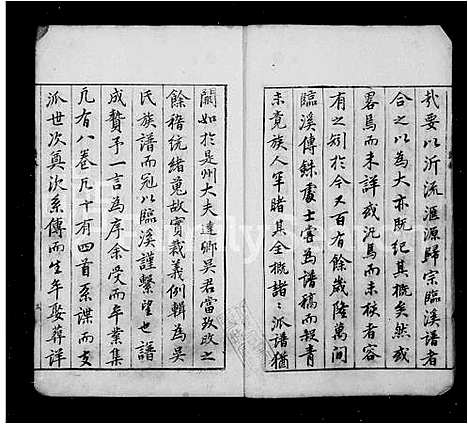 我要以沂流滙源歸宗臨溪譜者
合之以為大亦既紀其概矣然或
畧焉而未詳或氾焉而未核者容
有之矧於今又百有餘歲隆萬間
臨溪傳銶處士嘗為譜稿而殺青
未竟族人罕睹其全概諸〻派譜猶
闕如於是州大夫逹卿吳君當政敗之
餘稽統緒蒐故實裁義例輯為吳
氏族譜而冠以臨溪謹繫望也譜
成贅予一言為序余受而卒業集
凡有八卷凡十有四首系諜而支
派世次奠次系傳而生年娶葬詳